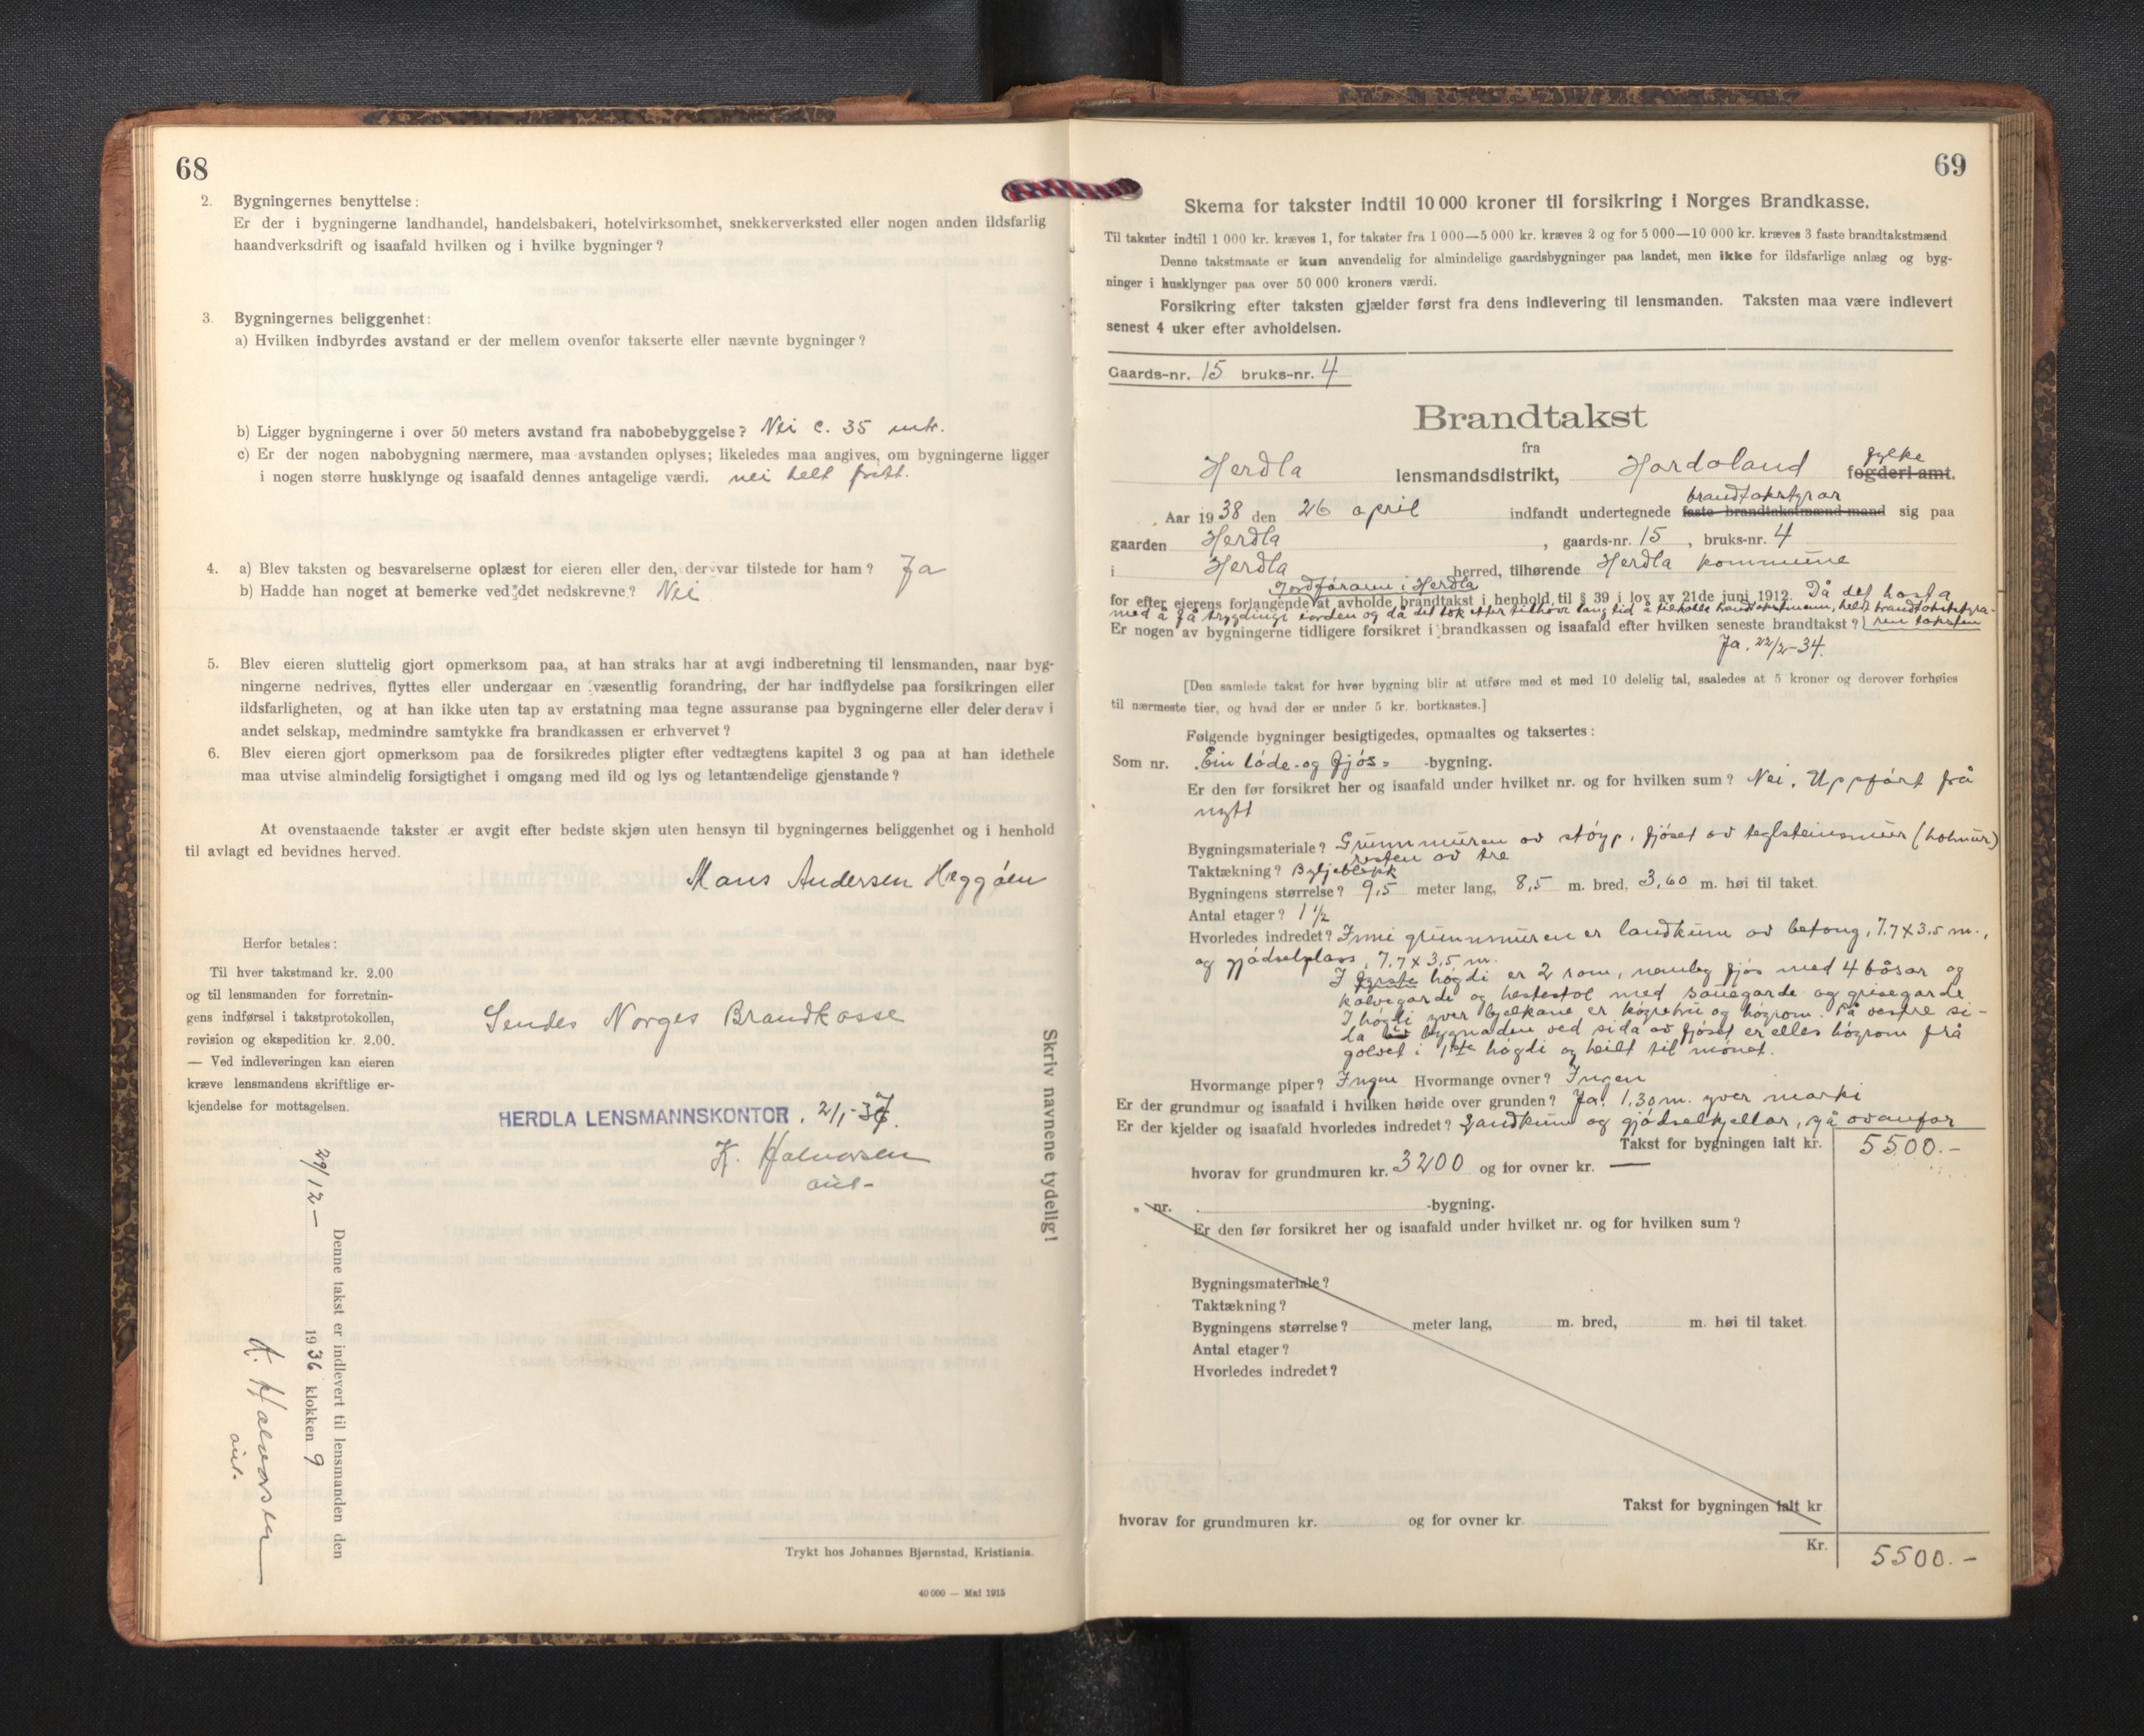 68
2. Bygningernes benyttelse:
Er der i bygningerne landhandel, handelsbakeri, hotelvirksomhet, snekkerverksted eller nogen anden ildsfarlig
haandverksdrift og isaafald hvilken og i hvilke bygninger?
3. Bygningernes beliggenhet:
a) Hvilken indbyrdes avstand er der mellem ovenfor takserte eller nævnte bygninger?
b) Ligger bygningerne i over 50 meters avstand fra nabobebyggelse? Nei c. 35 mtr.
c) Er der nogen nabobygning nærmere, maa avstanden oplyses; likeledes maa angives, om bygningerne ligger
i nogen større husklynge og isaafald dennes antagelige værdi. nei helt fritt.
4. a) Blev taksten og besvarelserne oplæst for eieren eller den, der var tilstede for ham? Ja
b) Hadde han noget at bemerke ved det nedskrevne? Nei
5. Blev eieren sluttelig gjort opmerksom paa, at han straks har at avgi indberetning til lensmanden, naar byg-
ningerne nedrives, flyttes eller undergaar en væsentlig forandring, der har indflydelse paa forsikringen eller
ildsfarligheten, og at han ikke uten tap av erstatning maa tegne assuranse paa bygningerne eller deler derav i
andet selskap, medmindre samtykke fra brandkassen er erhvervet?
6. Blev eieren gjort opmerksom paa de forsikredes pligter efter vedtægtens kapitel 3 og paa at han idethele
maa utvise almindelig forsigtighet i omgang med ild og lys og letantændelige gjenstande?
At ovenstaaende takster er avgit efter bedste skjøn uten hensyn til bygningernes beliggenhet og i henhold
til avlagt ed bevidnes herved.
Mons Andersen Heggøen
Herfor betales:
Til hver takstmand kr. 2.00
og til lensmanden for forretnin-
gens indførsel i takstprotokollen,
revision og ekspedition kr. 2.00.
— Ved indleveringen kan eieren
kræve lensmandens skriftlige er-
kjendelse for mottagelsen.
Sendes Norges Brandkasse
HERDLA LENSMANNSKONTOR, 2/1-37.
K. Halvorsen
Skriv navnene tydelig!
Denne takst er indlevert til lensmanden den
29/12 — 1936 klokken 9
K. Halvorsen
Trykt hos Johannes Bjørnstad, Kristiania.
40 000 — Mai 1915
69
Skema for takster indtil 10 000 kroner til forsikring i Norges Brandkasse.
Til takster indtil 1 000 kr. kræves 1, for takster fra 1 000—5 000 kr. kræves 2 og for 5 000—10 000 kr. kræves 3 faste brandtakstmænd
Denne takstmaate er kun anvendelig for almindelige gaardsbygninger paa landet, men ikke for ildsfarlige anlæg og byg-
ninger i husklynger paa over 50 000 kroners værdi.
Forsikring efter taksten gjælder først fra dens indlevering til lensmanden. Taksten maa være indlevert
senest 4 uker efter avholdelsen.
Gaards-nr. 15 bruks-nr. 4
Brandtakst
fra
Herdla lensmandsdistrikt, Hordaland fylke fogderi amt.
brandtakstyrar
Aar 1938 den 26 april indfandt undertegnede faste brandtakstmænd mand sig paa
gaarden Herdla, gaards-nr. 15, bruks-nr. 4
i Herdla herred, tilhørende Herdla kommune
Jordføraren i Herdla
for efter eierens forlangende at avholde brandtakst i henhold til § 39 i lov av 21de juni 1912. Då det hasta
med å få trygdingi i orden og då det tok etter tilhøve lang tid å tilkalle brandtakstmenn, heldt brandtakstyra-
Er nogen av bygningerne tidligere forsikret i brandkassen og isaafald efter hvilken seneste brandtakst? ren taksten
Ja. 22/2-34.
[Den samlede takst for hver bygning blir at utføre med et med 10 delelig tal, saaledes at 5 kroner og derover forhøies
til nærmeste tier, og hvad der er under 5 kr. bortkastes.]
Følgende bygninger besigtigedes, opmaaltes og taksertes:
Som nr. Ein løde- og fjøs- -bygning.
Er den før forsikret her og isaafald under hvilket nr. og for hvilken sum? Nei. Uppført frå
nytt
Bygningsmateriale? Grunnmuren av støyp, fjøset av teglsteinsmur (holmur)
resten av tre
Taktækning? Bylgjeblekk
Bygningens størrelse? 9,5 meter lang, 8,5 m. bred, 3,60 m. høi til taket.
Antal etager? 1 1/2
Hvorledes indredet? Inni grunnmuren er landkum av betong, 7.7 x 3.5 m.,
og gjødselplass, 7,7 x 3,5 m.
I fyrste høgdi er 2 rom, nemleg fjøs med 4 båsar og
kalvegarde og hestestal med sauegarde og grisegarde
I høgdi yver bjelkane er høgrehu og høyrom. På vestre si-
da bygnaden ved sida av fjøset er elles høyrom frå
golvet i 1ste høgdi og heilt til mønet.
Hvormange piper? Ingen Hvormange ovner? Ingen
Er der grundmur og isaafald i hvilken høide over grunden? Ja! 1.30 m. yver marki
Er der kjelder og isaafald hvorledes indredet? Landkum og gjødselkjellar, sjå ovanfor
Takst for bygningen ialt kr. 5500.-
hvorav for grundmuren kr. 3200 og for ovner kr. —
" nr. -bygning.
Er den før forsikret her og isaafald under hvilket nr. og for hvilken sum?
Bygningsmateriale?
Taktækning?
Bygningens størrelse? meter lang, m. bred, m. høi til taket.
Antal etager?
Hvorledes indredet?
Takst for bygningen ialt kr
hvorav for grundmuren kr. og for ovner kr.
Kr. 5500.-